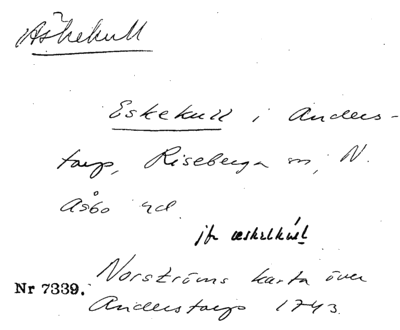 Äskekull
Eskekull i Anders-
torp, Riseberga sn, N.
Åsbo hd.
jfr æskelkúsl
Norströms karta över
Nr 7339.
Anderstorp 1743.